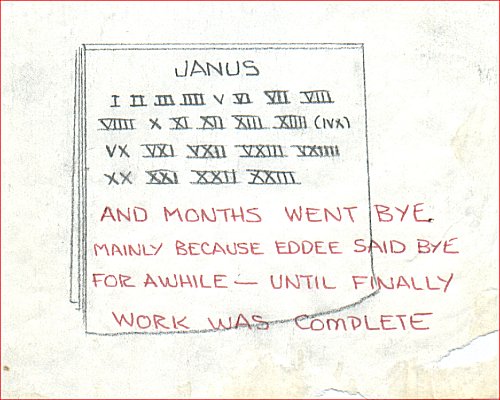 JANUS
I II III IIII V VI VII VIII
VIIII X XI XII XIII XIIII (IVX)
VX VXI VXII VXIII VXIIII
XX XXI XXII XXIII
AND MONTHS WENT BYE.
MAINLY BECAUSE EDDEE SAID BYE
FOR AWHILE — UNTIL FINALLY
WORK WAS COMPLETE